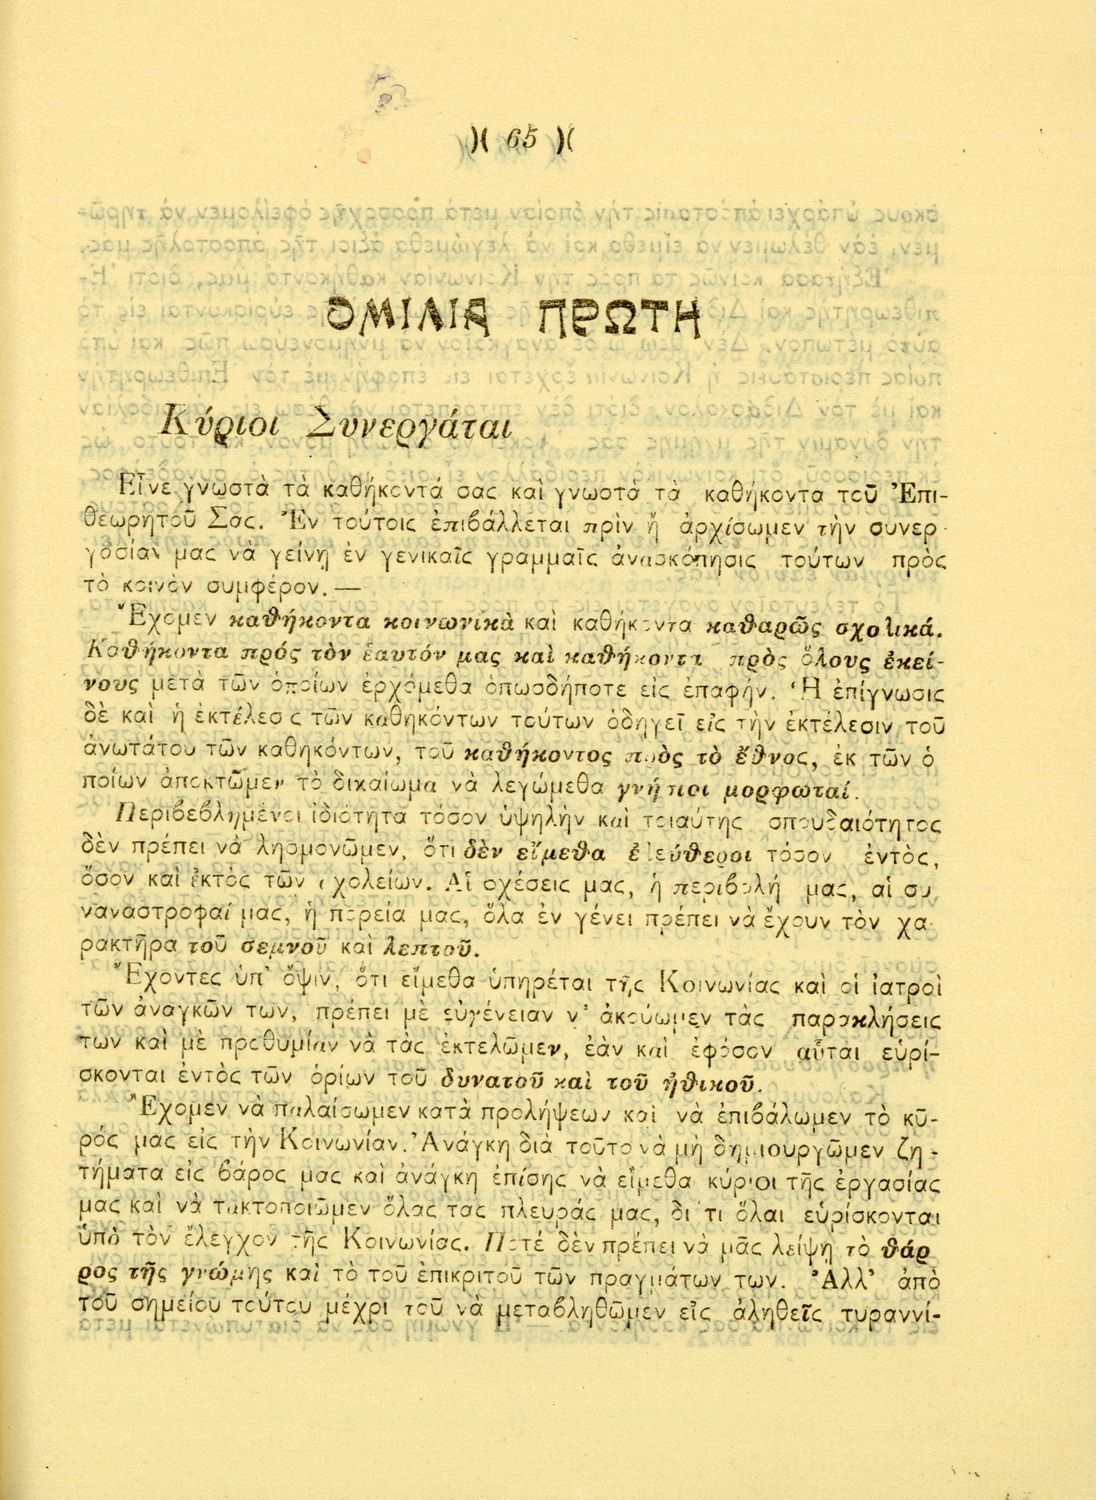 )( 65 )(
ΟΜΙΛΙΑ ΠΡΩΤΗ
Κύριοι Συνεργάται
Εἶνε γνωστὰ τὰ καθήκοντά σας καὶ γνωστὰ τὰ καθήκοντα τοῦ Ἐπι-
θεωρητοῦ Σας. Ἐν τούτοις ἐπιβάλλεται πρὶν ἤ ἀρχίσωμεν τὴν συνερ-
γασίαν μας νὰ γείνῃ ἐν γενικαῖς γραμμαῖς ἀνασκόπησις τούτων πρὸς
τὸ κοινὸν συμφέρον.—
Ἔχομεν καθήκοντα κοινωνικὰ καὶ καθήκοντα καθαρῶς σχολικά.
Καθήκοντα πρός τὸν ἑαυτόν μας καὶ καθήκοντα πρὸς ὅλους ἐκεί-
νους μετὰ τῶν ὁποίων ἐρχόμεθα ὁπωσδήποτε εἰς ἐπαφήν. Ἡ ἐπίγνωσις
δὲ καὶ ἡ ἐκτέλεσις τῶν καθηκόντων τούτων ὁδηγεῖ εἰς τὴν ἐκτέλεσιν τοῦ
ἀνωτάτου τῶν καθηκόντων, τοῦ καθήκοντος πρὸς τὸ ἔθνος, ἐκ τῶν ὁ
ποίων ἀποκτῶμεν τὸ δικαίωμα νὰ λεγώμεθα γνήσιοι μορφωταί.
Περιβεβλημένοι ἰδιότητα τόσον ὑψηλὴν καὶ τοιαύτης σπουδαιότητος
δὲν πρέπει νὰ λησμονῶμεν, ὅτι δὲν εἴμεθα ἐλεύθεροι τόσον ἐντὸς,
ὅσον καὶ ἐκτὸς τῶν σχολείων. Αἱ σχέσεις μας, ἡ περιβολή μας, αἱ συ
ναναστροφαί μας, ἡ πορεία μας, ὅλα ἐν γένει πρέπει νὰ ἔχουν τὸν χα-
ρακτῆρα τοῦ σεμνοῦ καὶ λεπτοῦ.
Ἔχοντες ὑπ' ὄψιν, ὅτι εἴμεθα ὑπηρέται τῆς Κοινωνίας καὶ οἱ ἰατροὶ
τῶν ἀναγκῶν των, πρέπει μὲ εὐγένειαν ν' ἀκούωμεν τὰς παρακλήσεις
των καὶ μὲ προθυμίαν νὰ τὰς ἐκτελῶμεν, ἐὰν καὶ ἐφόσον αὗται εὑρί-
σκονται ἐντὸς τῶν ὁρίων τοῦ δυνατοῦ καὶ τοῦ ἠθικοῦ.
Ἔχομεν νὰ παλαίσωμεν κατὰ προλήψεων καὶ νὰ ἐπιβάλωμεν τὸ κῦ-
ρός μας εἰς τὴν Κοινωνίαν. Ἀνάγκη διὰ τοῦτο νὰ μὴ δημιουργῶμεν ζη-
τήματα εἰς βάρος μας καὶ ἀνάγκη ἐπίσης νὰ εἴμεθα κύριοι τῆς ἐργασίας
μας καὶ νὰ τακτοποιῶμεν ὅλας τας πλευράς μας, διότι ὅλαι εὑρίσκονται
ὑπὸ τὸν ἔλεγχον τῆς Κοινωνίας. Ποτέ δὲν πρέπει νὰ μᾶς λείψῃ τὸ θάρ
ρος τῆς γνώμης καὶ τὸ τοῦ ἐπικριτοῦ τῶν πραγμάτων των. Ἀλλ' ἀπὸ
τοῦ σημείου τούτου μέχρι τοῦ νὰ μεταβληθῶμεν εἰς ἀληθεῖς τυραννί-